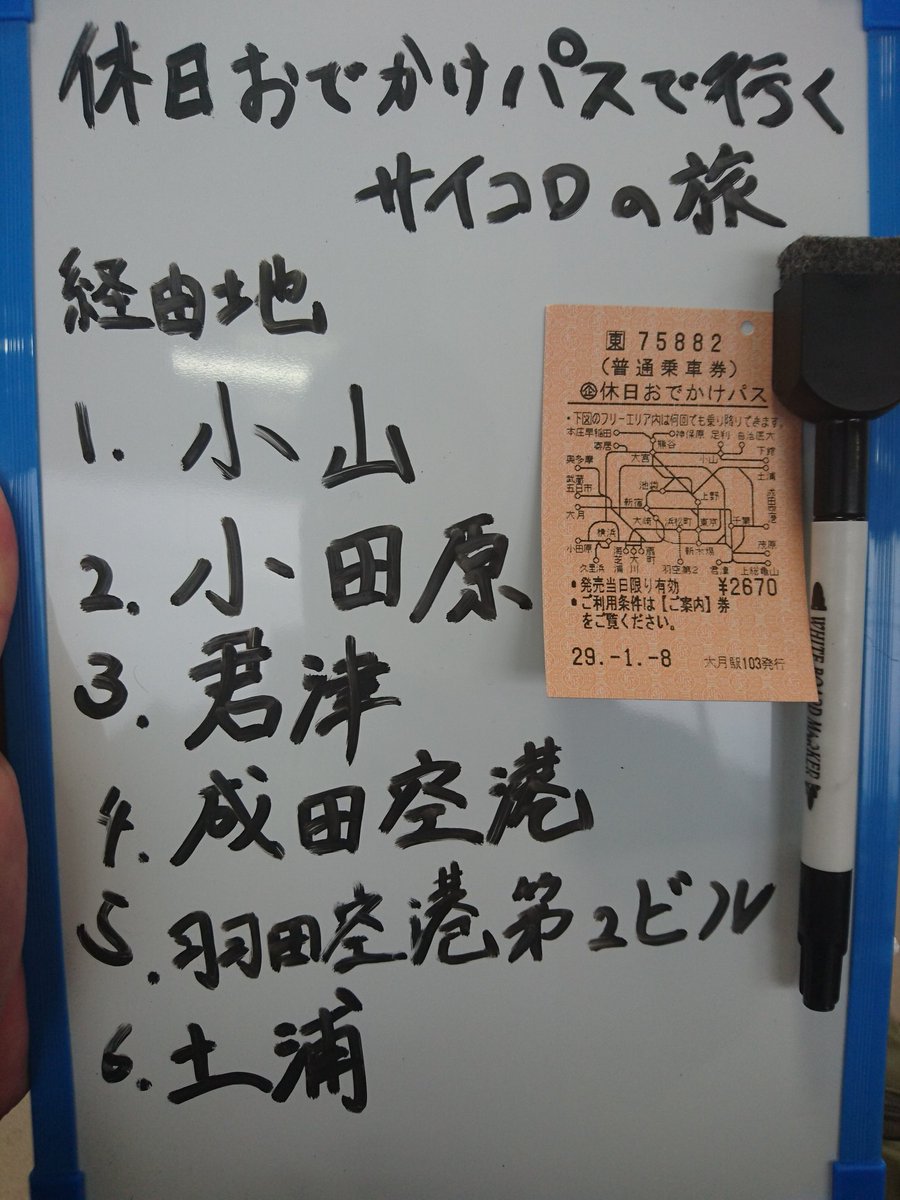 休日おでかけパスで行く
サイコロの旅
経由地
1. 小山
2. 小田原
3. 君津
4. 成田空港
5. 羽田空港第2ビル
6. 土浦
東 75882
(普通乗車券)
企 休日おでかけパス
・下図のフリーエリア内は何回でも乗り降りできます。
本庄早稲田 神保原 足利 自治医大
寄居 熊谷 下館
奥多摩 大宮 小山 土浦
武蔵五日市 池袋 上野 成田空港
大月 新宿
大崎 浜松町 東京 千葉
横浜
小田原 新木場 茂原
久里浜 羽空第2 君津 上総亀山
・発売当日限り有効 ¥2670
・ご利用条件は【ご案内】券
をご覧ください。
29.-1.-8 大月駅103発行
WHITE BOARD MARKER